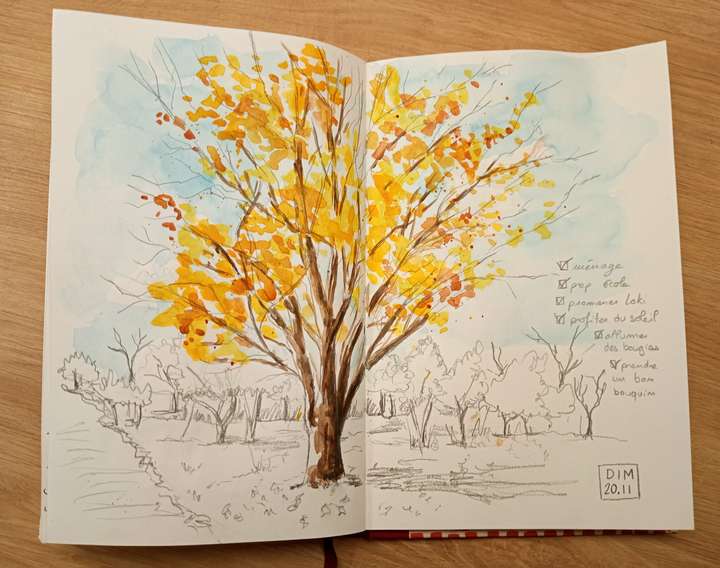 ménage
prep école
promener Loki
profiter du soleil
allumer
des bougies
prendre
un bon
bouquin
DIM
20.11